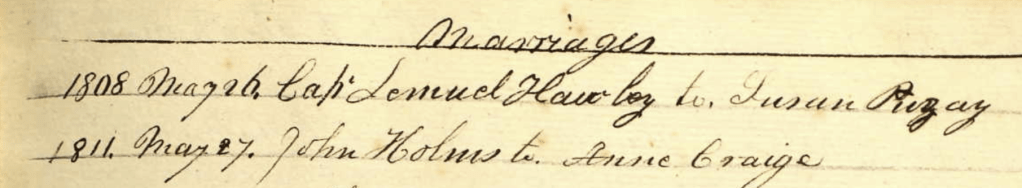 Marriages
1808 May 26. Capt Lemuel Hawley to. Susan
1811. May 27. John Holms to. Anne Craige